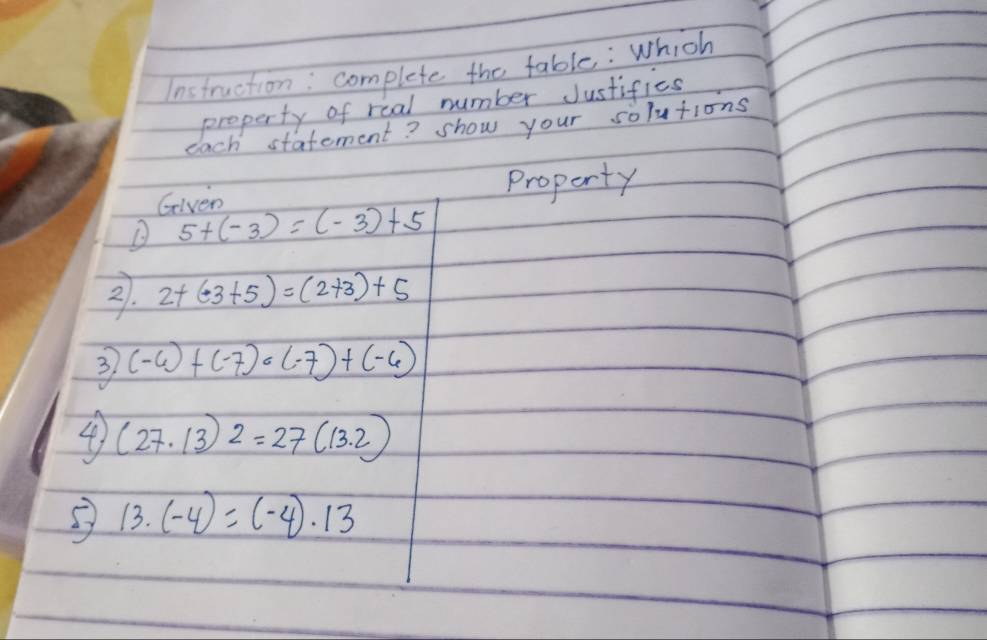 Instruction: complete the table: Which
property of real number Justifies
each statement? show your solutions
Given
Property
1) 5+(-3) = (-3)+5
2). 2+(-3+5)=(2+3)+5
3) (-6)+(-7)=(-7)+(-6)
4) (27.13) 2 = 27 (13.2)
5) 13.(-4) = (-4).13